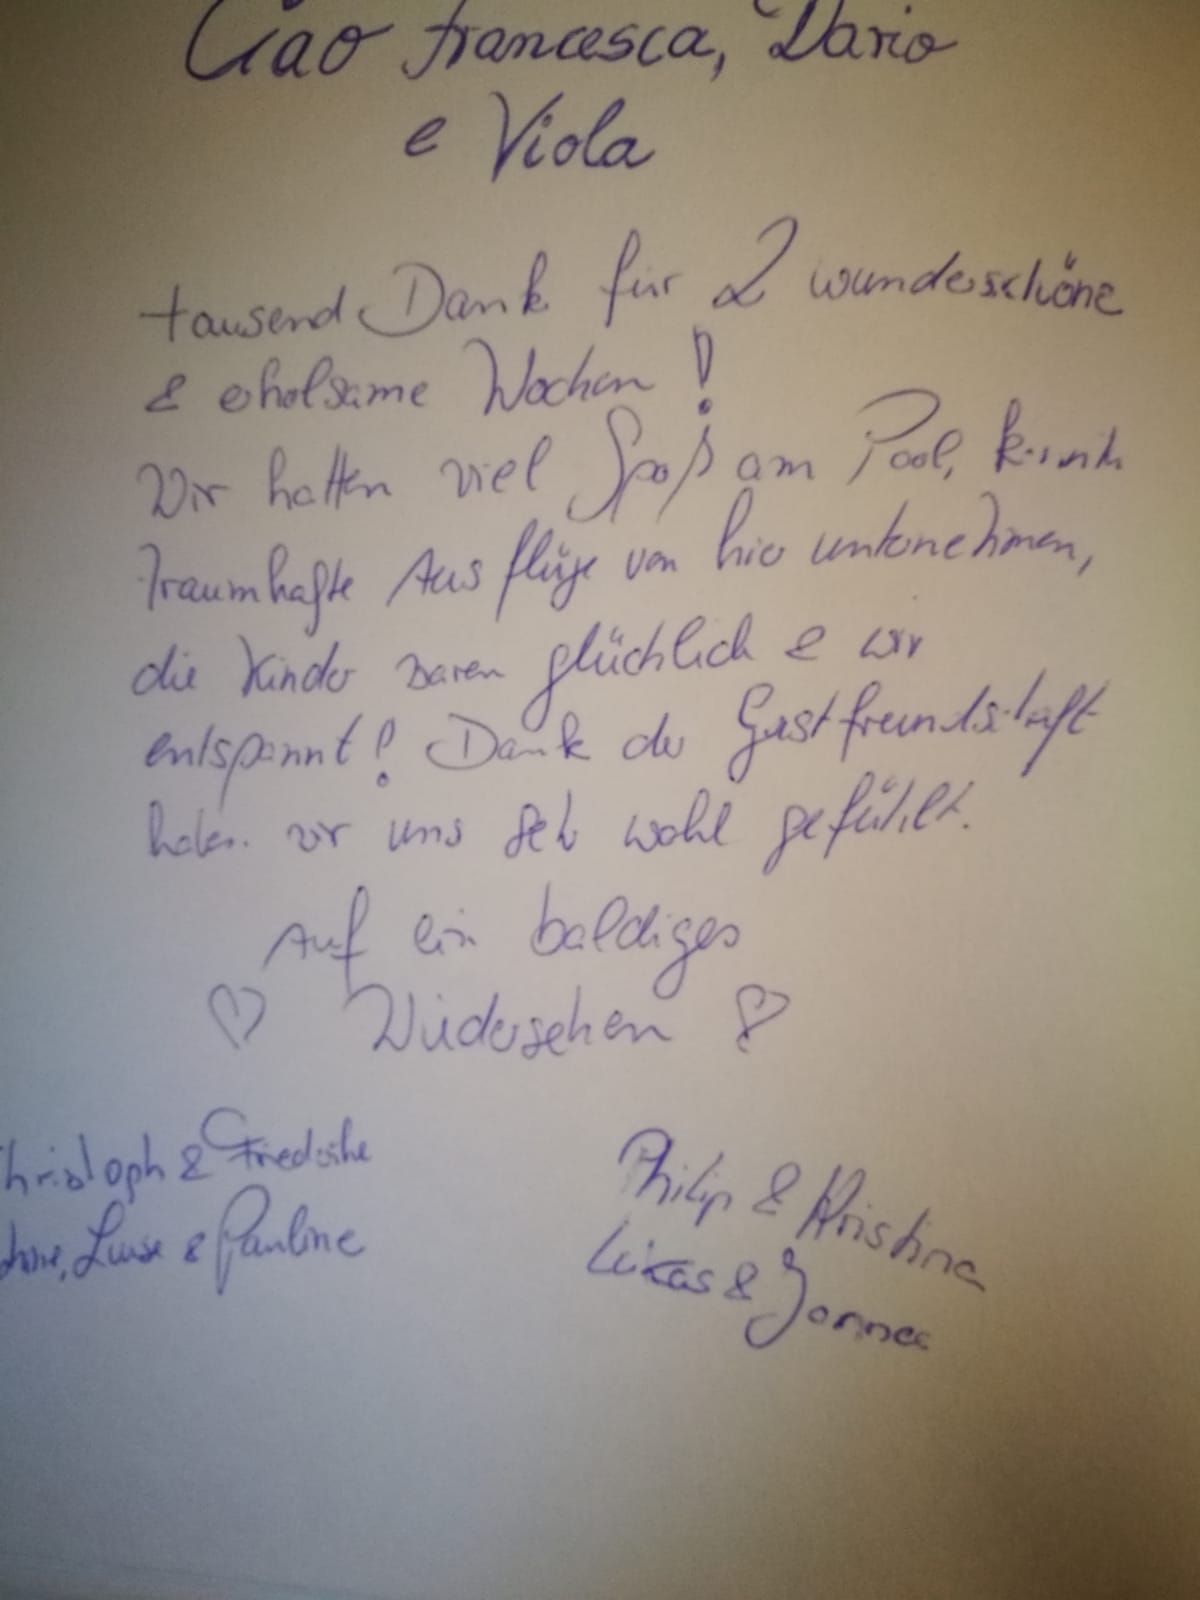 Ciao Francesca, Dario
e Viola
tausend Dank für 2 wunderschöne
& erholsame Wochen!
Wir hatten viel Spaß am Pool, konnten
traumhafte Ausflüge von hier unternehmen,
die Kinder waren glücklich & wir
entspannt! Dank der Gastfreundschaft
haben wir uns sehr wohl gefühlt.
Auf ein baldiges
♡ Wiedersehen ♡
Christoph & Friederike
Luise & Pauline
Philip & Kristina
Lukas &